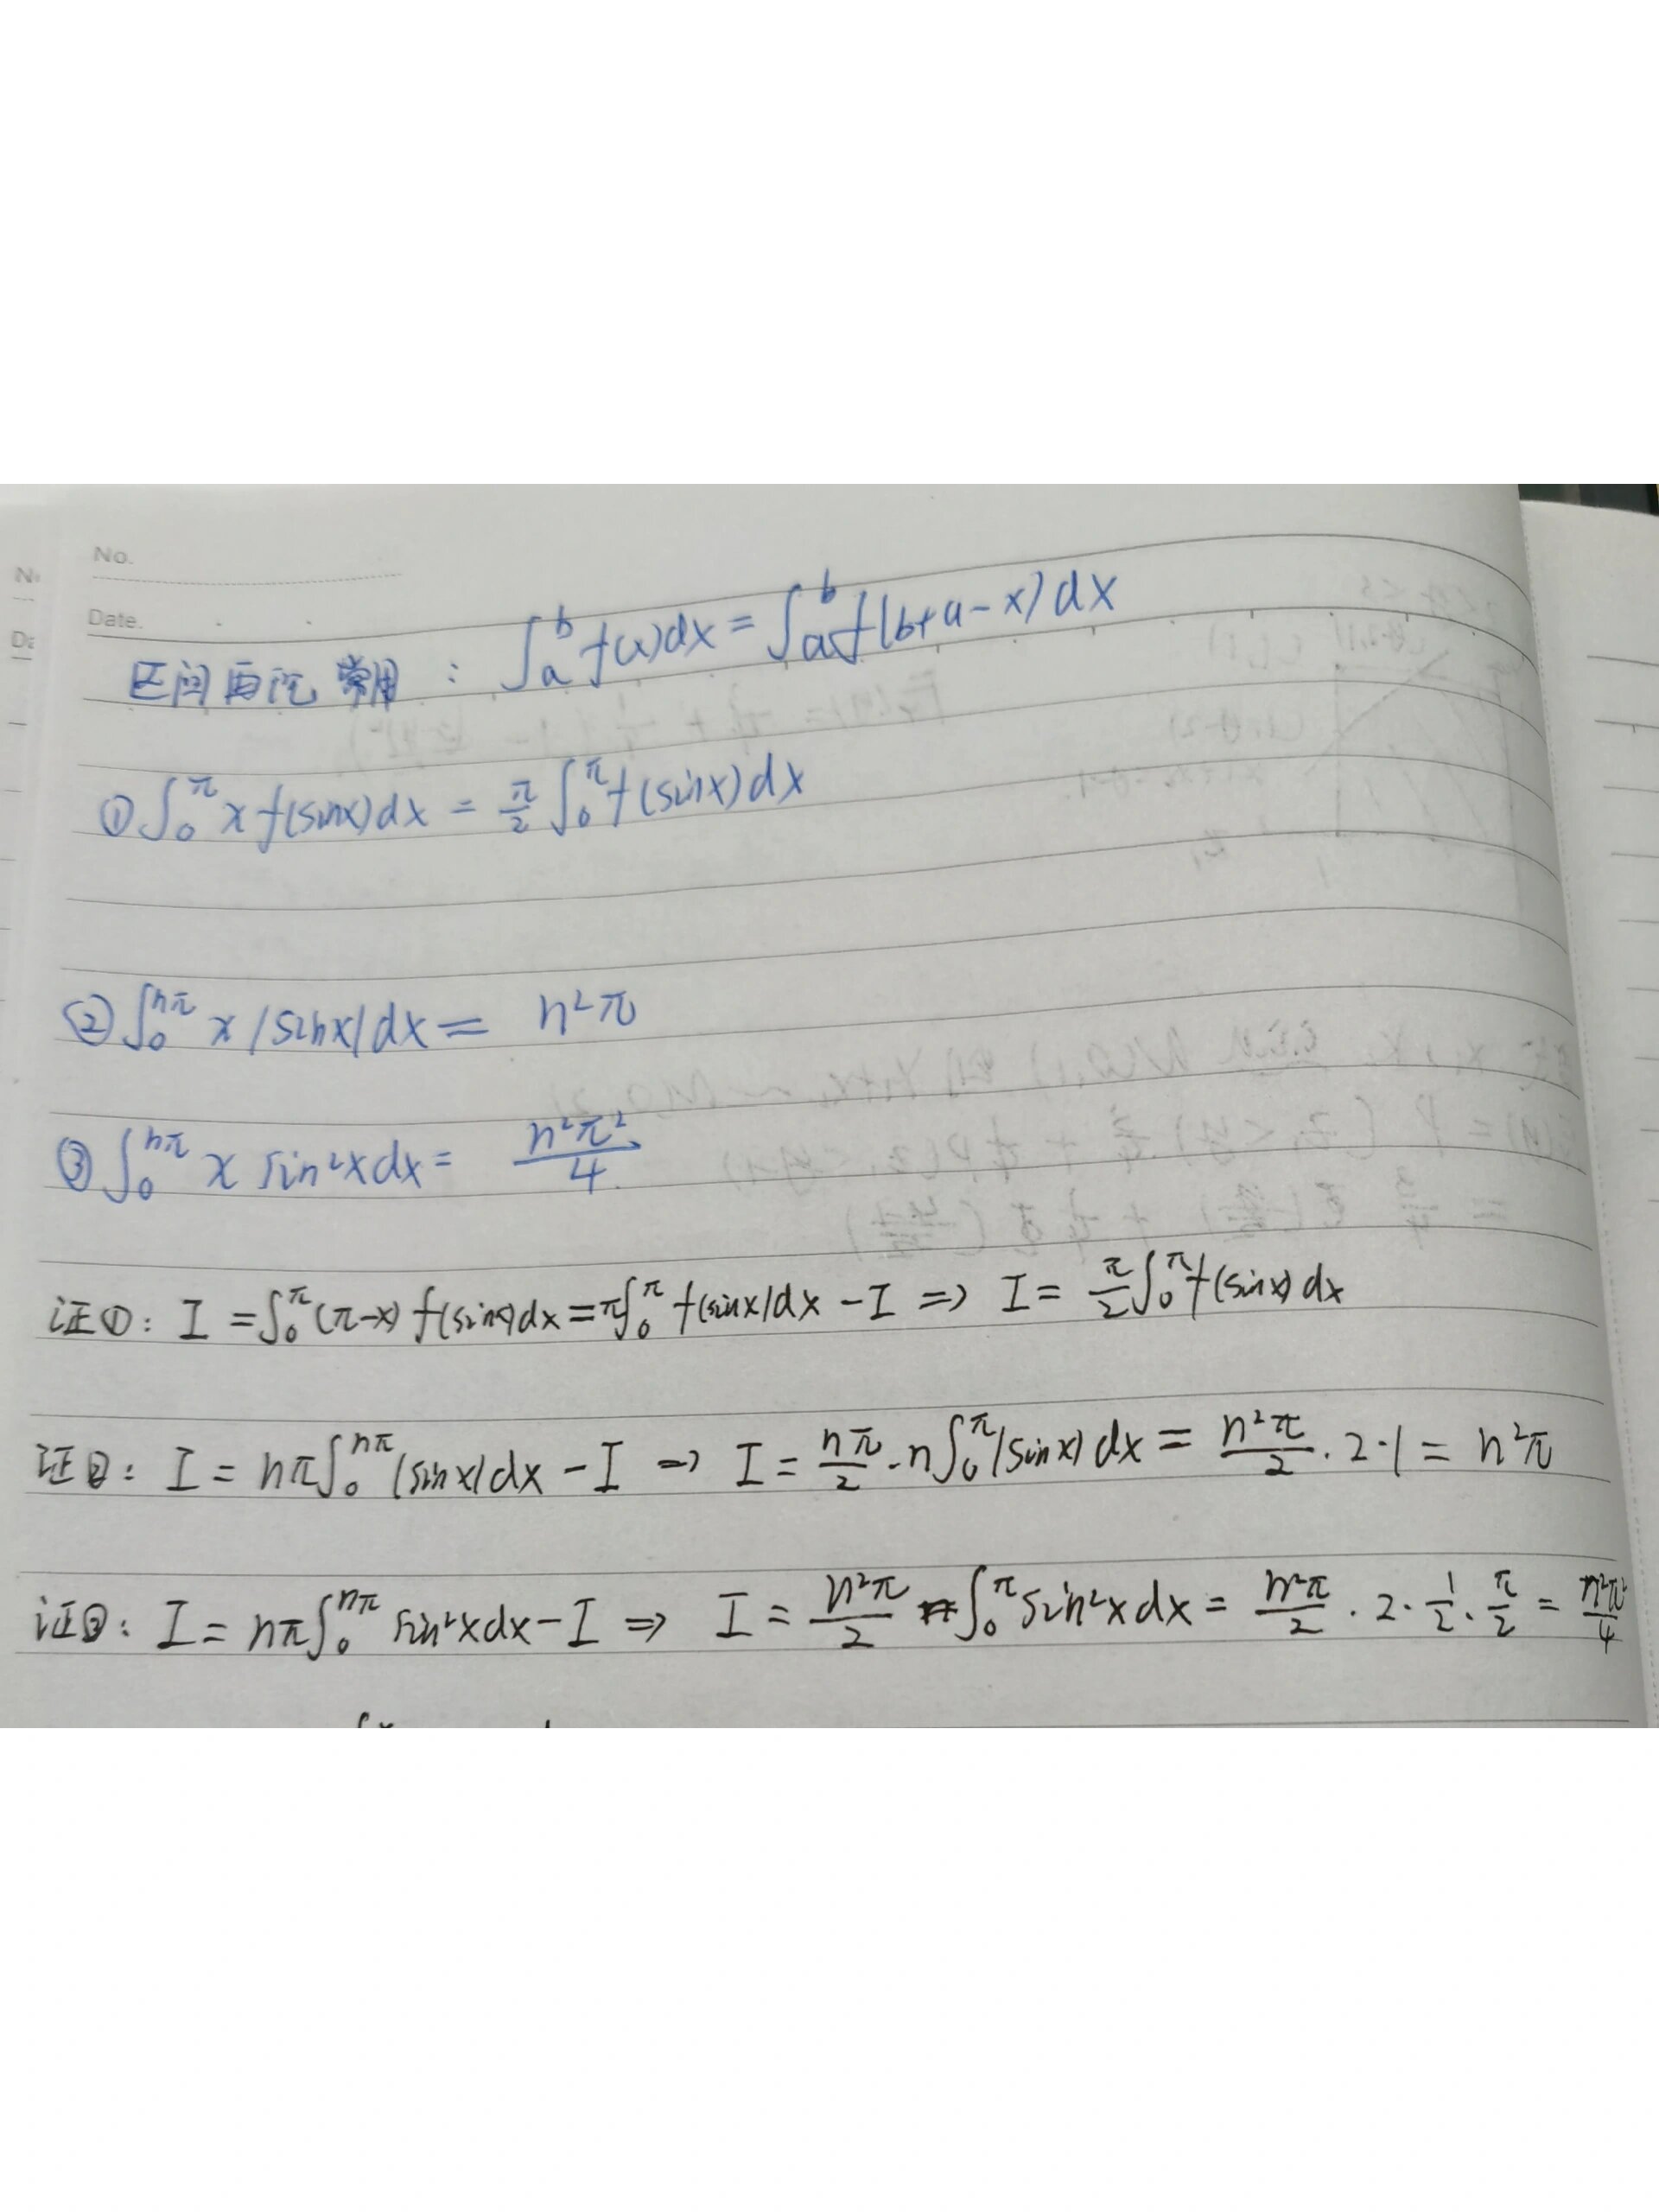 No.
Date.
区间再现 常用 : ∫_a^b f(x)dx = ∫_a^b f(b+a-x)dx
① ∫_0^π x f(sinx)dx = π/2 ∫_0^π f(sinx)dx
② ∫_0^{nπ} x|sinx|dx = n²π
③ ∫_0^{nπ} x sin²xdx = n²π²/4
证①: I = ∫_0^π (π-x) f(sinx)dx = π∫_0^π f(sinx)dx - I ⇒ I = π/2 ∫_0^π f(sinx)dx
证②: I = nπ∫_0^{nπ} |sinx|dx - I ⇒ I = nπ/2 · n∫_0^π |sinx|dx = n²π/2 · 2·1 = n²π
证③: I = nπ∫_0^{nπ} sin²xdx - I ⇒ I = n²π/2 ∫_0^π sin²xdx = n²π/2 · 2 · 1/2 · π/2 = n²π²/4